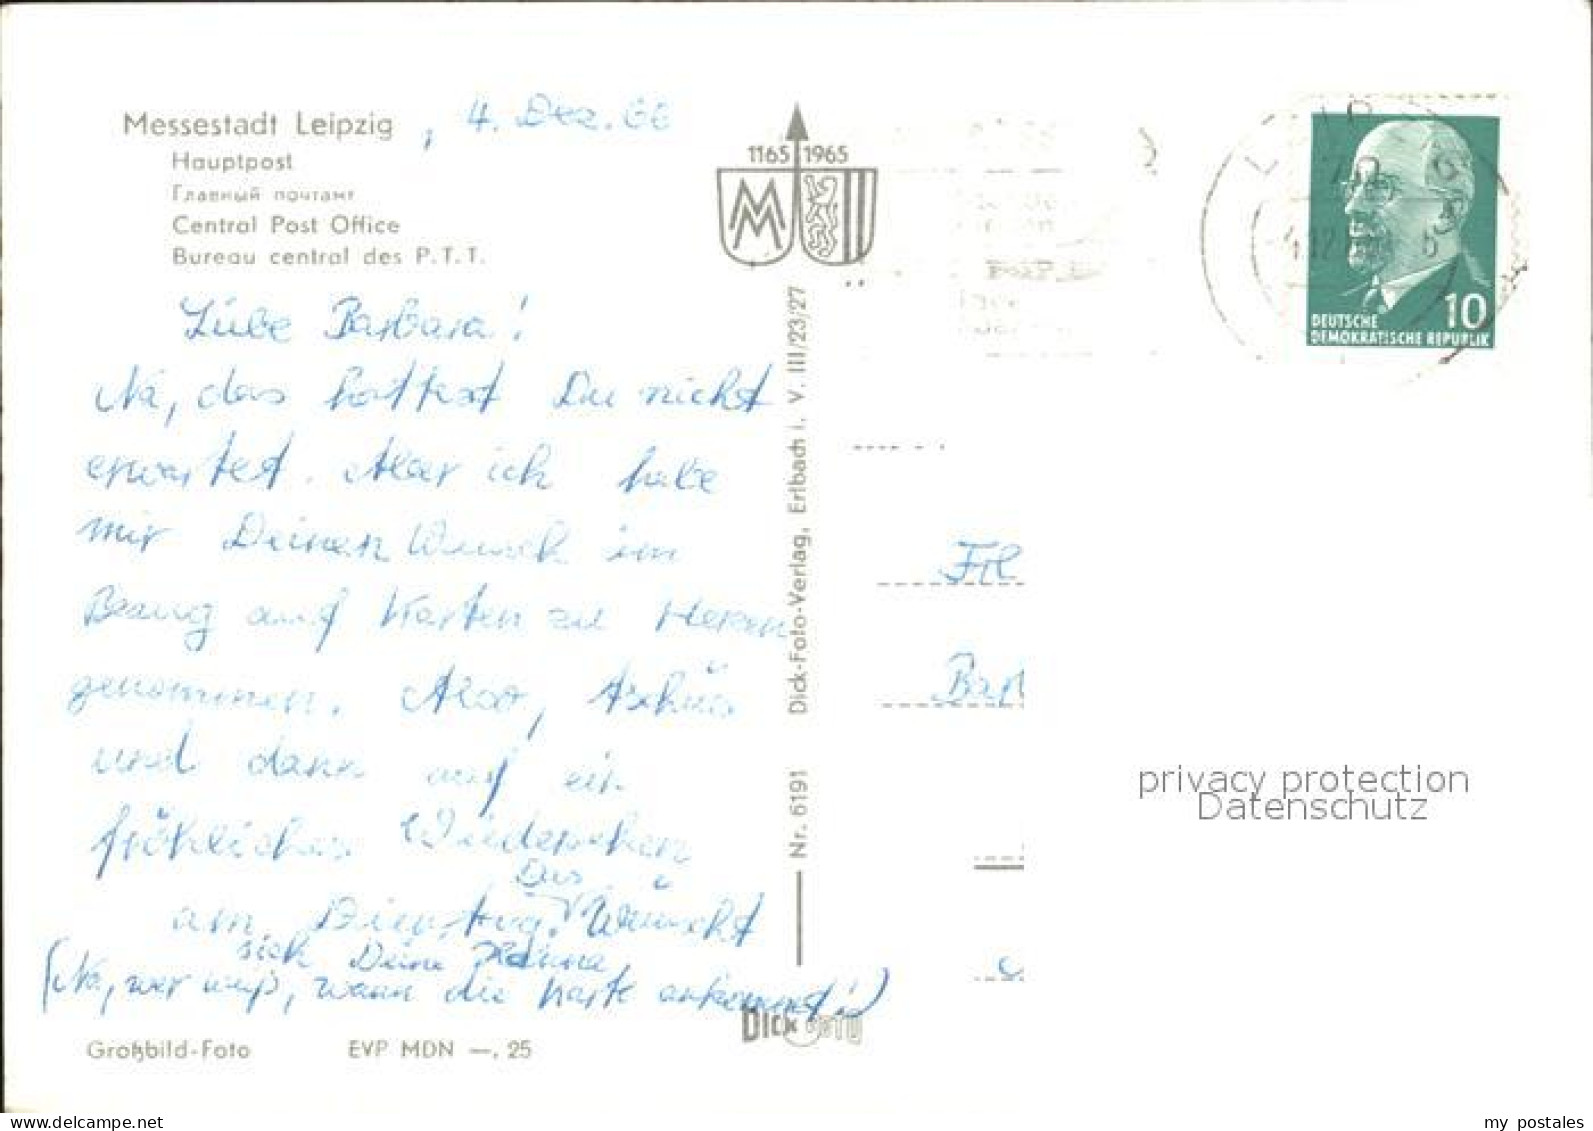 Messestadt Leipzig, 4. Dez. 66
Hauptpost
Главный почтамт
Central Post Office
Bureau central des P.T.T.
1165 1965
MM
DEUTSCHE
DEMOKRATISCHE REPUBLIK
10
Liebe Barbara!
Na, das hattest Du nicht
erwartet. Aber ich habe
mir Deinen Wunsch im
Bezug auf Karten zu Herzen
genommen. Also, tschüs
und dann auf ein
fröhliches Wiedersehen
am Dienstag. Das wünscht
sich Deine
(Na, wer weiß, wann die Karte ankommt!)
Großbild-Foto EVP MDN —. 25
Nr. 6191 Dick-Foto-Verlag, Erlbach i. V. III/23/27
Dick FOTO
Frl
Barb
privacy protection
Datenschutz
my postales